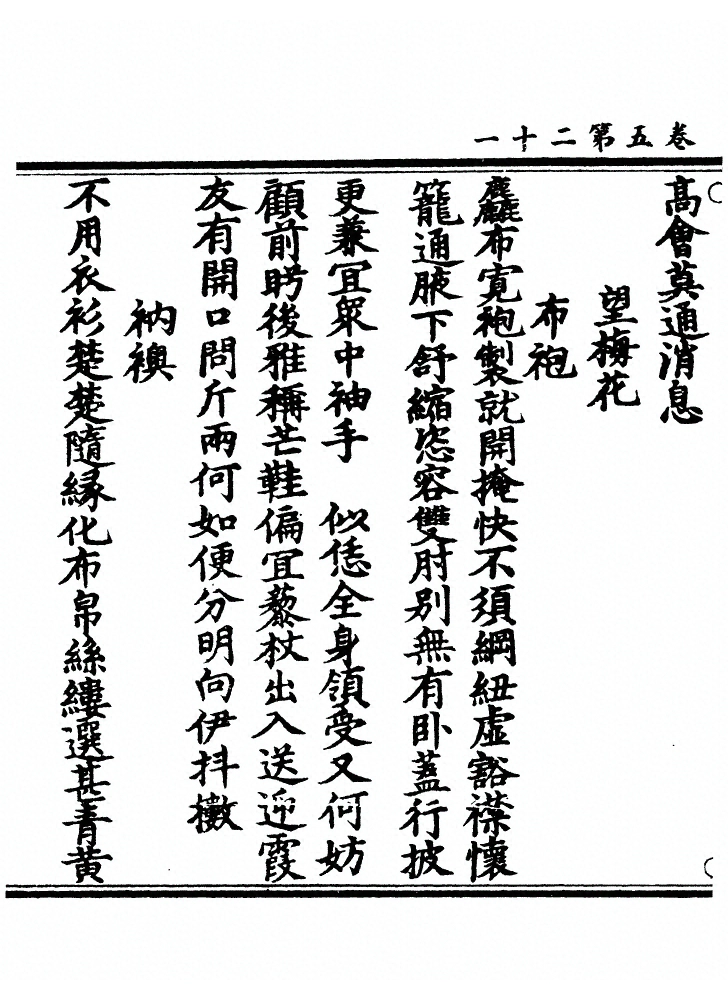 卷五第二十一
高會莫通消息
望梅花
布袍
麤布寬袍製就開掩快不須綱紐虛豁襟懷
籠通腋下舒縮恣容雙肘別無有卧蓋行披
更兼宜眾中袖手　似恁全身領受又何妨
顧前眄後雅稱芒鞋偏宜藜杖出入送迎霞
友有開口問斤兩何如便分明向伊抖擻
衲襖
不用衣衫楚楚隨緣化布帛絲縷選甚青黃